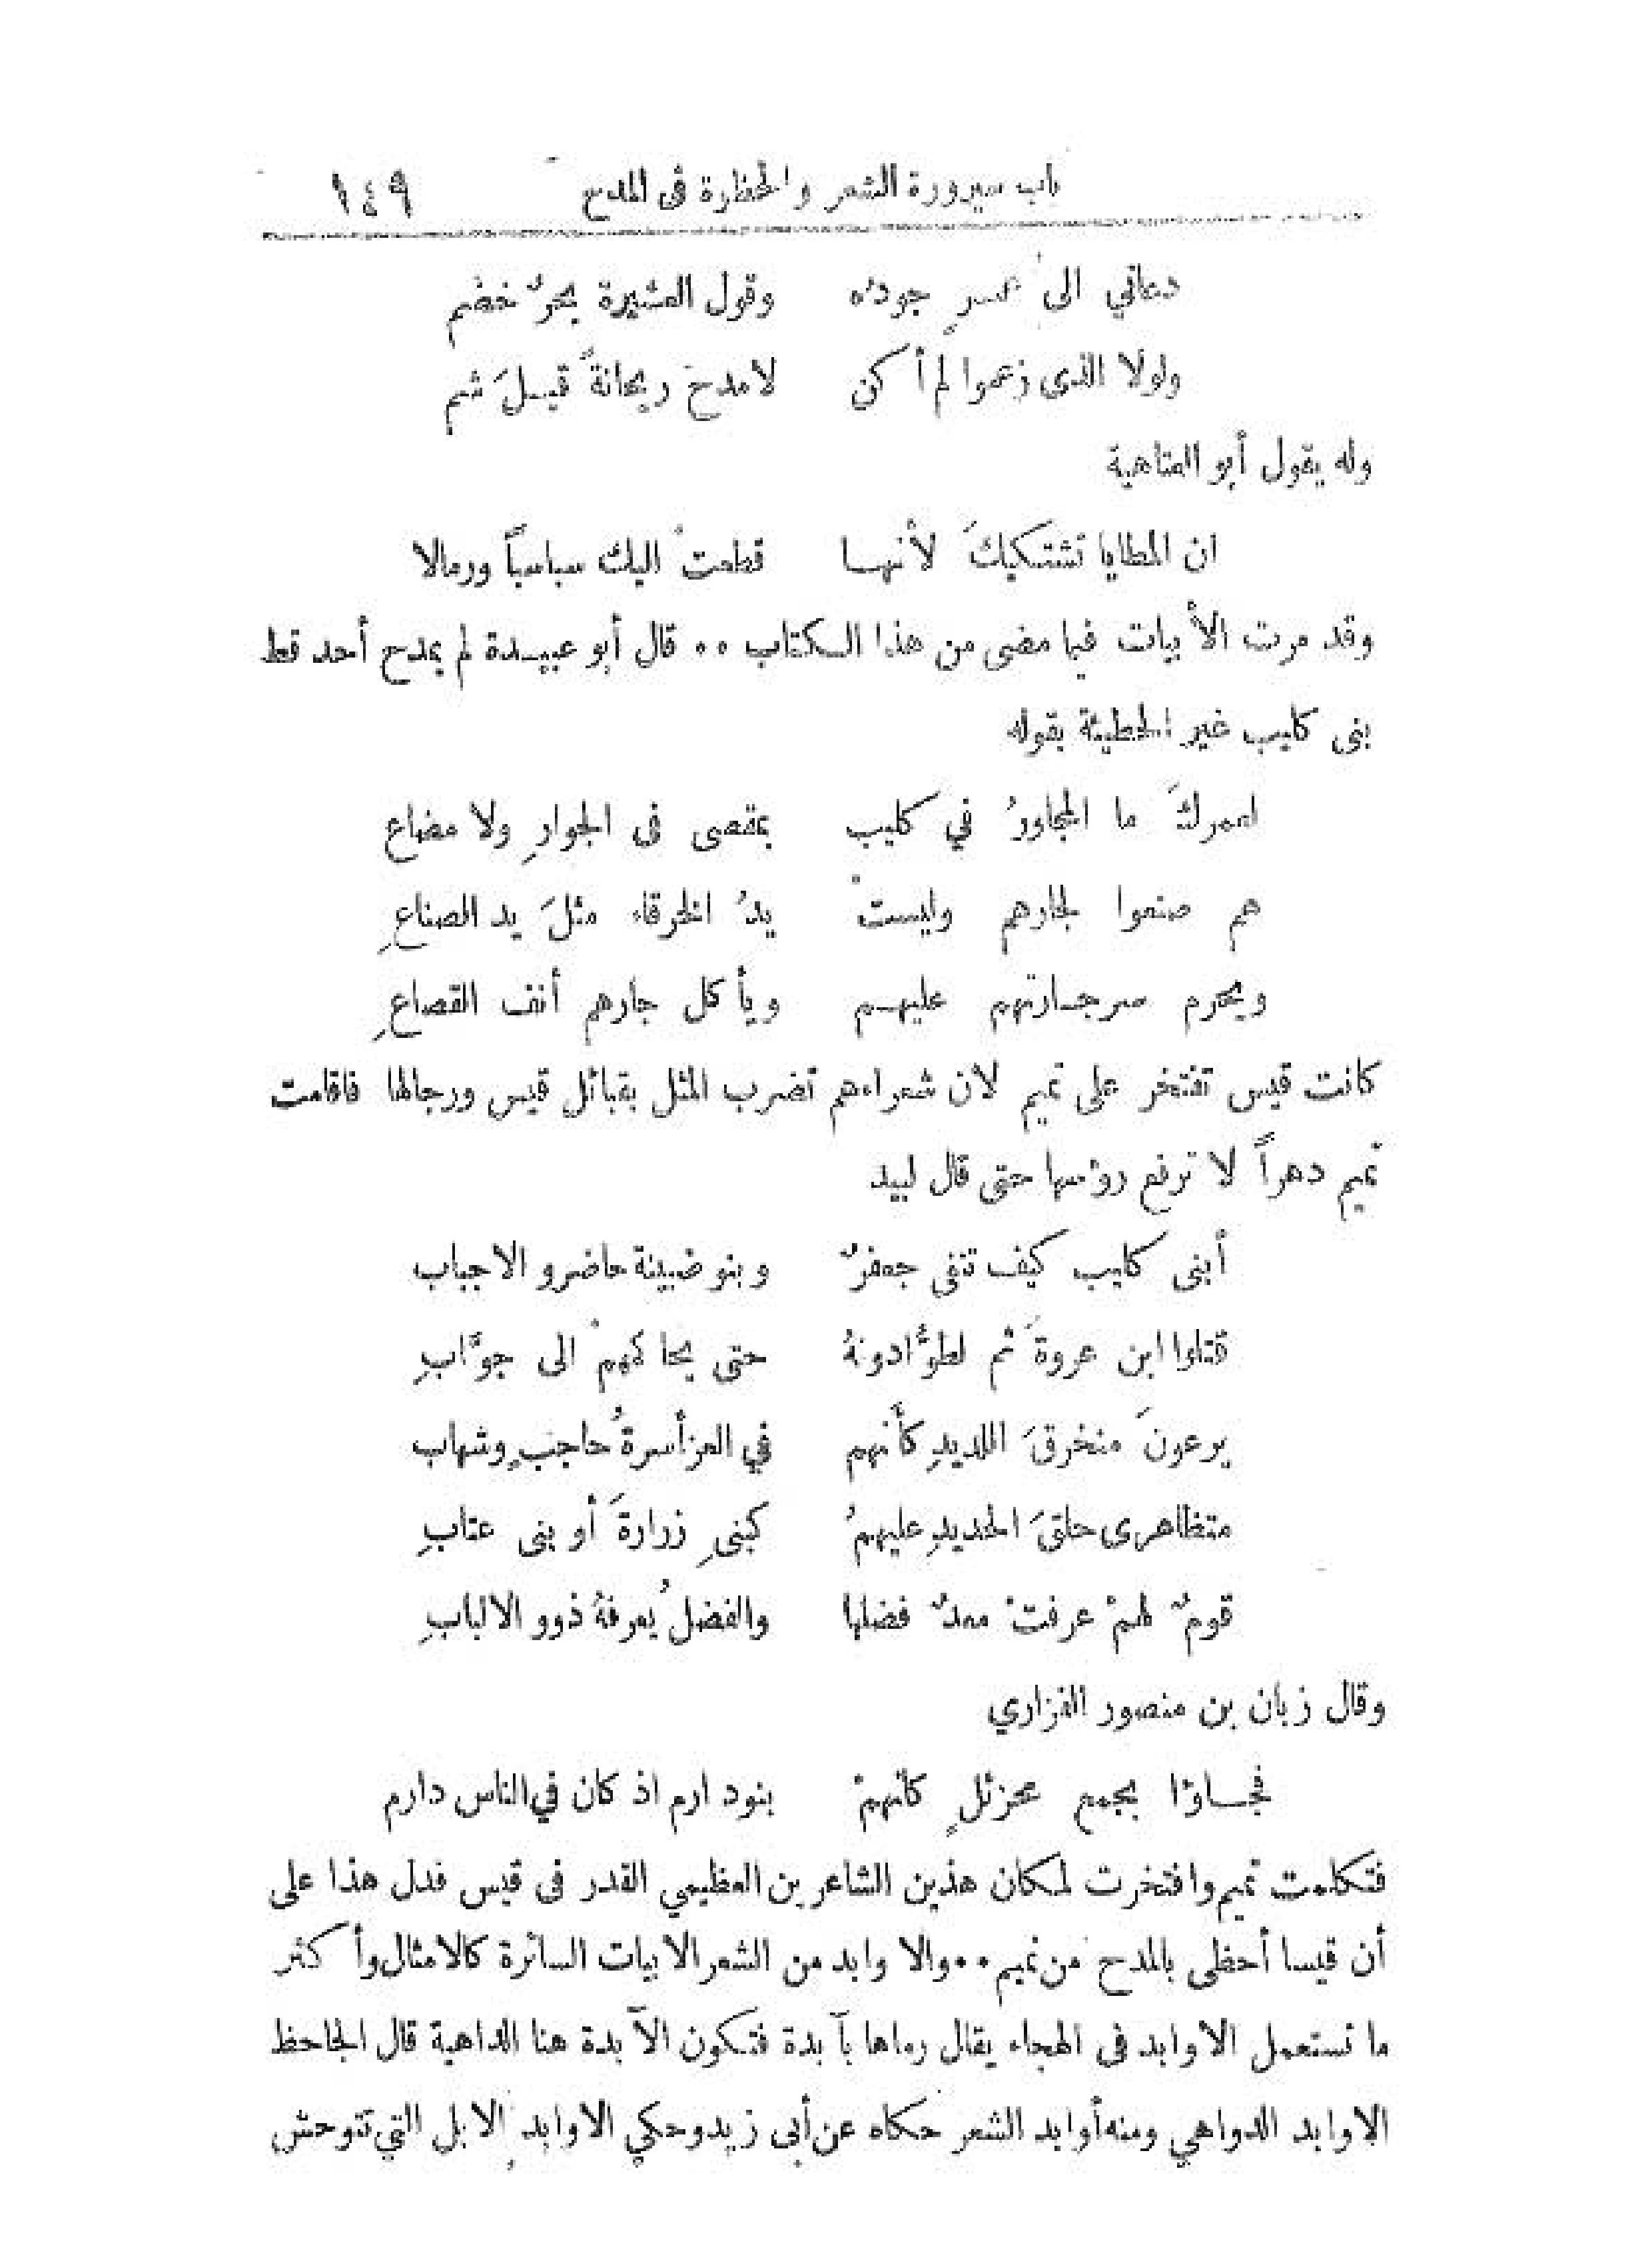 باب سيرورة الشعر والحظوة فى المدح ١٤٩
دعاني الى عمرٍ جوده وقول العشيرة بحرٌ خضم
ولولا الذى زعموا لم أكن لامدحَ ريحانةً قبـلَ شم
وله يقول أبو العتاهية
ان المطايا تشتكيكَ لأنهـا قطعتْ اليك سباسباً ورمالا
وقد مرت الأبيات فيما مضى من هذا الكتاب ٠٠ قال أبو عبيـدة لم يمدح أحد قط
بنى كليب غير الحطيئة بقوله
لعمركَ ما المجاورُ في كليب بمقصى فى الجوارِ ولا مضاع
هم صنعوا لجارهم وليستْ يدُ الخرقاء مثلَ يد الصناعِ
ويحرم سر جـارتهم عليهـم ويأكل جارهم أنف القصاعِ
كانت قيس تفتخر على تميم لان شعراءهم تضرب المثل بقبائل قيس ورجالها فاقامت
تميم دهراً لا ترفع رؤسها حتى قال لبيد
أبنى كليب كيف تنفى جعفرٌ وبنو ضبينة حاضرو الاجباب
قتلوا ابن عروةَ ثم لطوُّا دونهُ حتى يحاكمهمْ الى جوَّابِ
يرعونَ منخرقَ اللديدِ كأنهم في العز أسرةُ حاجبٍ وشهاب
متظاهرى حلقَ الحديدِ عليهمُ كبنىِ زرارةَ أو بنى عتابِ
قومٌ لهمْ عرفتْ معدٌ فضلها والفضلُ يعرفهُ ذوو الالبابِ
وقال زبان بن منصور الفزاري
فجـاؤا بجمع محزئلٍ كأنهمْ بنو دارم اذ كان في الناس دارم
فتكلمت تميم وافتخرت لمكان هذين الشاعرين العظيمي القدر فى قيس فدل هذا على
أن قيسا أحظى بالمدح من تميم ٠٠ والاوابد من الشعر الابيات السائرة كالامثال وأكثر
ما تستعمل الاوابد فى الهجاء يقال رماها بآبدة فتكون الآبدة هنا الداهية قال الجاحظ
الاوابد الدواهي ومنه أوابد الشعر حكاه عن أبى زيد وحكي الاوابد الابل التي تتوحش